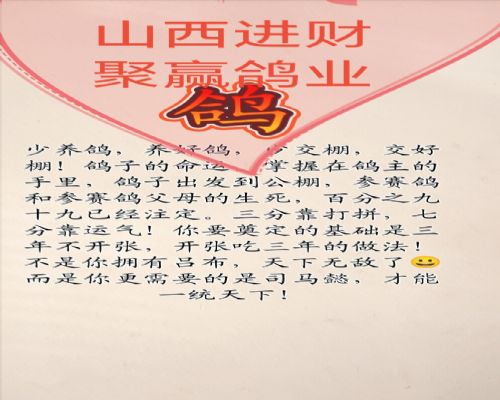 山西进财
聚赢鸽业
鸽
少养鸽，养好鸽，少交棚，交好
棚！鸽子的命运 掌握在鸽主的
手里，鸽子出发到公棚，参赛鸽
和参赛鸽父母的生死，百分之九
十九已经注定。三分靠打拼，七
分靠运气！你要奠定的基础是三
年不开张，开张吃三年的做法！
不是你拥有吕布，天下无敌了😀
而是你更需要的是司马懿，才能
一统天下！